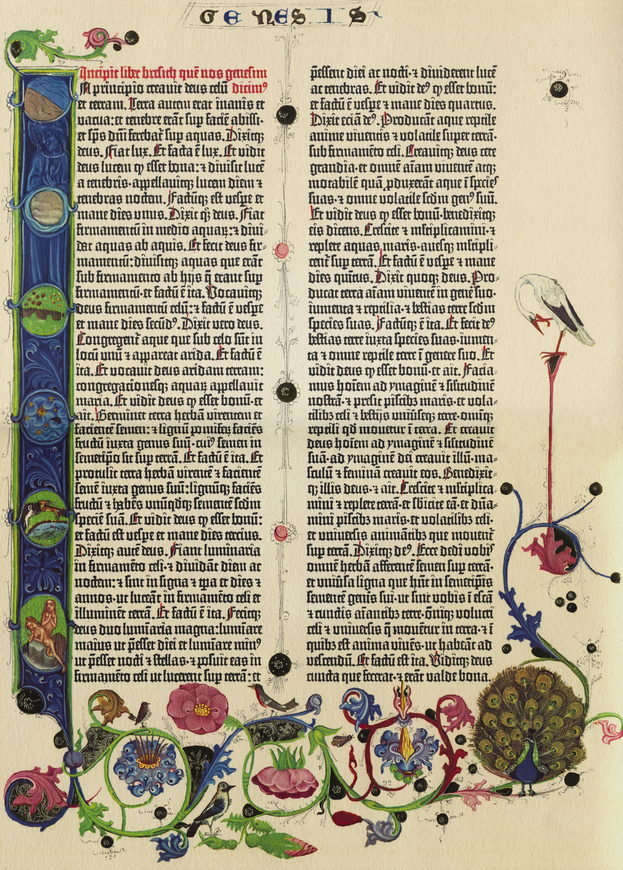 GENESIS
Incipit liber bresith quē nos genesim
In principio creavit deus celū dicimꝰ
et terram. Terra autem erat inanis et
vacua: et tenebre erāt sup faciē abissi:
et spūs dñi ferebat sup aquas. Dixitqꝫ
deus. Fiat lux. Et facta ē lux. Et vidit
deus lucem ꝙ esset bona: ⁊ divisit lucē
a tenebris. appellavitqꝫ lucem diem ⁊
tenebras noctem. Factūqꝫ est vespe et
mane dies unus. Dixit qꝫ deus. Fiat
firmamentū in medio aquaꝝ: ⁊ divi-
dat aquas ab aquis. Et fecit deus fir-
mamentū: divisitqꝫ aquas que erāt
sub firmamento ab hijs q̄ erant sup
firmamentū: et factū ē ita. Vocavitqꝫ
deus firmamentū celū: ⁊ factū ē vespe
et mane dies secūdꝰ. Dixit vero deus.
Congregent aque que sub celo sūt in
locū unū ⁊ appareat arida. Et factū ē
ita. Et vocavit deus aridam terram:
congregacionesqꝫ aquaꝝ appellavit
maria. Et vidit deus ꝙ esset bonū. et
ait. Germinet terra herbā virentem et
facientem semen: ⁊ lignū pomifeꝝ faciēs
fructū iuxta genus suū. cuiꝰ semen in
semetipo sit sup terram. Et factū ē ita. Et
protulit terra herbā virentē ⁊ facientē
semē iuxta genus suū: lignūqꝫ faciēs
fructū ⁊ habēs unūqdqꝫ sementē scdm
speciē suā. Et vidit deus ꝙ esset bonū:
et factū est vespe et mane dies tercius.
Dixitqꝫ autē deus. Fiant luminaria
in firmamēto celi. ⁊ dividāt diem ac
noctem: ⁊ sint in signa ⁊ tpa et dies ⁊
annos. ut luceāt in firmamēto celi et
illuminēt terrā. Et factū ē ita. Fecitqꝫ
deus duo luminaria magna: luminare
maius ut pesset diei et luminare minꝰ
ut pesset nocti ⁊ stellas. ⁊ posuit eas in
firmamēto celi ut lucerent sup terrā: et
pessent diei ac nocti. ⁊ dividerent lucē
ac tenebras. Et vidit deꝰ ꝙ esset bonū:
et factū ē vespe ⁊ mane dies quartus.
Dixit eciā deꝰ. Producāt aque reptile
anime viventis ⁊ volatile super terrā.
sub firmamēto celi. Creavitqꝫ deus cete
grandia. et omnē aīam viventē atqꝫ
motabilē quā produxerāt aque ī species
suas. ⁊ omne volatile scdm genꝰ suū.
Et vidit deus ꝙ esset bonū. benedixitqꝫ
eis dicens. Crescite ⁊ multiplicamini. ⁊
replete aquas maris. avesqꝫ multipli-
cent sup terrā. Et factū ē vespe ⁊ mane
dies quintus. Dixit quoqꝫ deus. Pro-
ducat terra aīam viventē in genē suo.
iumenta ⁊ reptilia. ⁊ bestias terre scdm
species suas. Factūqꝫ ē ita. Et fecit deꝰ
bestias terre iuxta species suas. iumen-
ta ⁊ omne reptile terre ī genere suo. Et
vidit deus ꝙ esset bonū. et ait. Facia-
mus hoīem ad ymaginē ⁊ similitudinē
nostrā. ⁊ presit piscibꝫ maris. et vola-
tilibꝫ celi ⁊ bestijs univseqꝫ terre. omniqꝫ
reptili qd movetur ī terra. Et creavit
deus hoīem ad ymaginē ⁊ similitudinē
suā. ad ymaginē dei creavit illū. ma-
sculū ⁊ feminā creavit eos. Benedixit-
qꝫ illis deus. ⁊ ait. Crescite ⁊ multiplica-
mini ⁊ replete terrā. et subicite eā. ⁊ dna-
mini piscibꝫ maris. et volatilibꝫ celi.
et universis animātibꝫ que movent
sup terrā. Dixitqꝫ deꝰ. Ecce dedi vobis
omnē herbā afferentē semen sup terrā.
et univsa ligna que hnt in semetipis
sementē genēis sui. ut sint vobis ī escā
⁊ cunctis aīantibꝫ terre. omniqꝫ volucri
celi ⁊ universis q̄ movētur in terra. ⁊ ī
quibꝫ est anima vivēs. ut habeāt ad
vescendū. Et factū est ita. Viditqꝫ deus
cuncta que fecerat. ⁊ erāt valde bona.